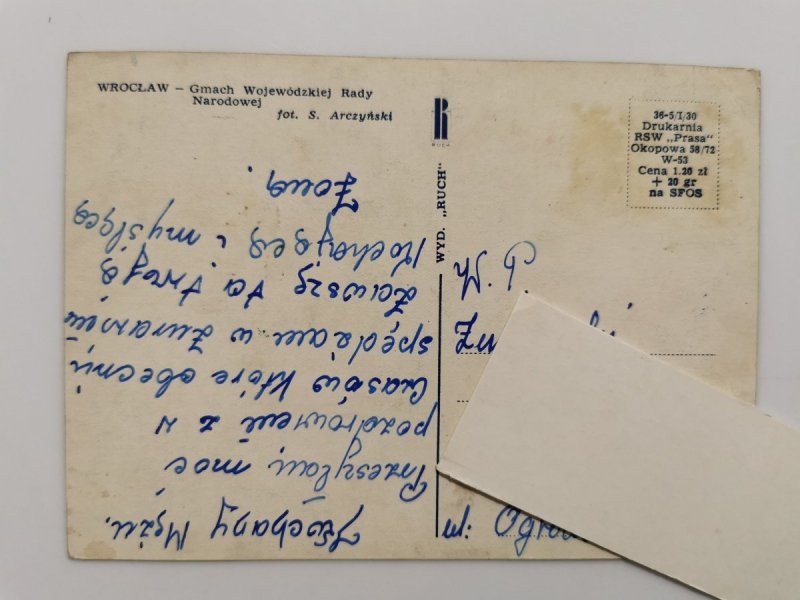 WROCŁAW – Gmach Wojewódzkiej Rady
Narodowej
fot. S. Arczyński
R
RUCH
WYD. „RUCH"
36-5/I/30
Drukarnia
RSW „Prasa"
Okopowa 58/72
W-53
Cena 1.20 zł
+ 20 gr
na SFOS
Kochany Mężu.
Przesyłam moc
pozdrowień z w
czasów które obecnie
spędzam w
Zawsze ta Twoja
Kochająca i myśląca
Żona.